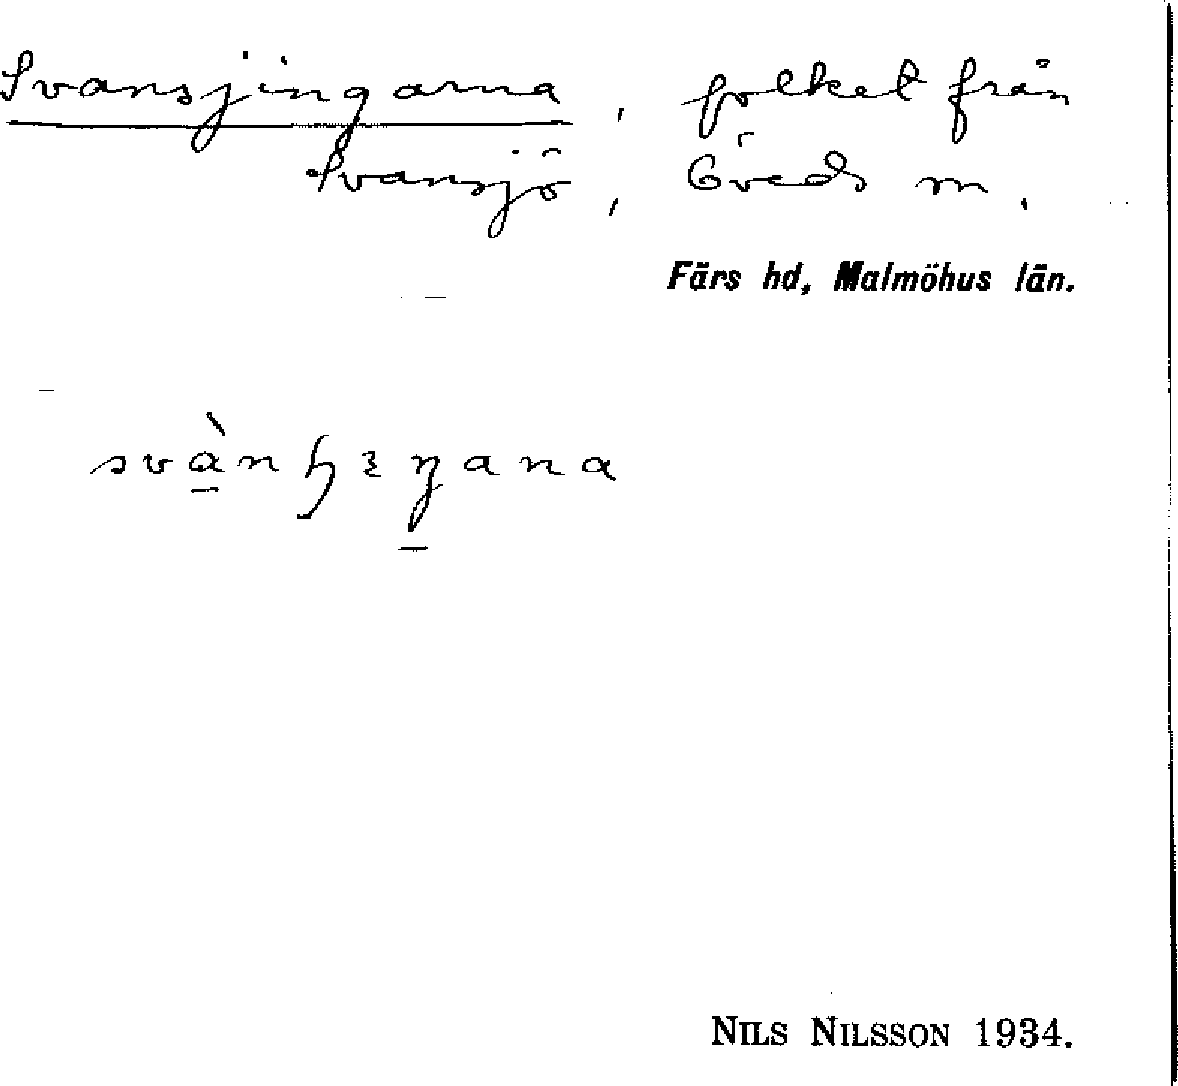 Svansjingarna, folket från
Svansjö, Öveds m.
Färs hd, Malmöhus län.
NILS NILSSON 1934.